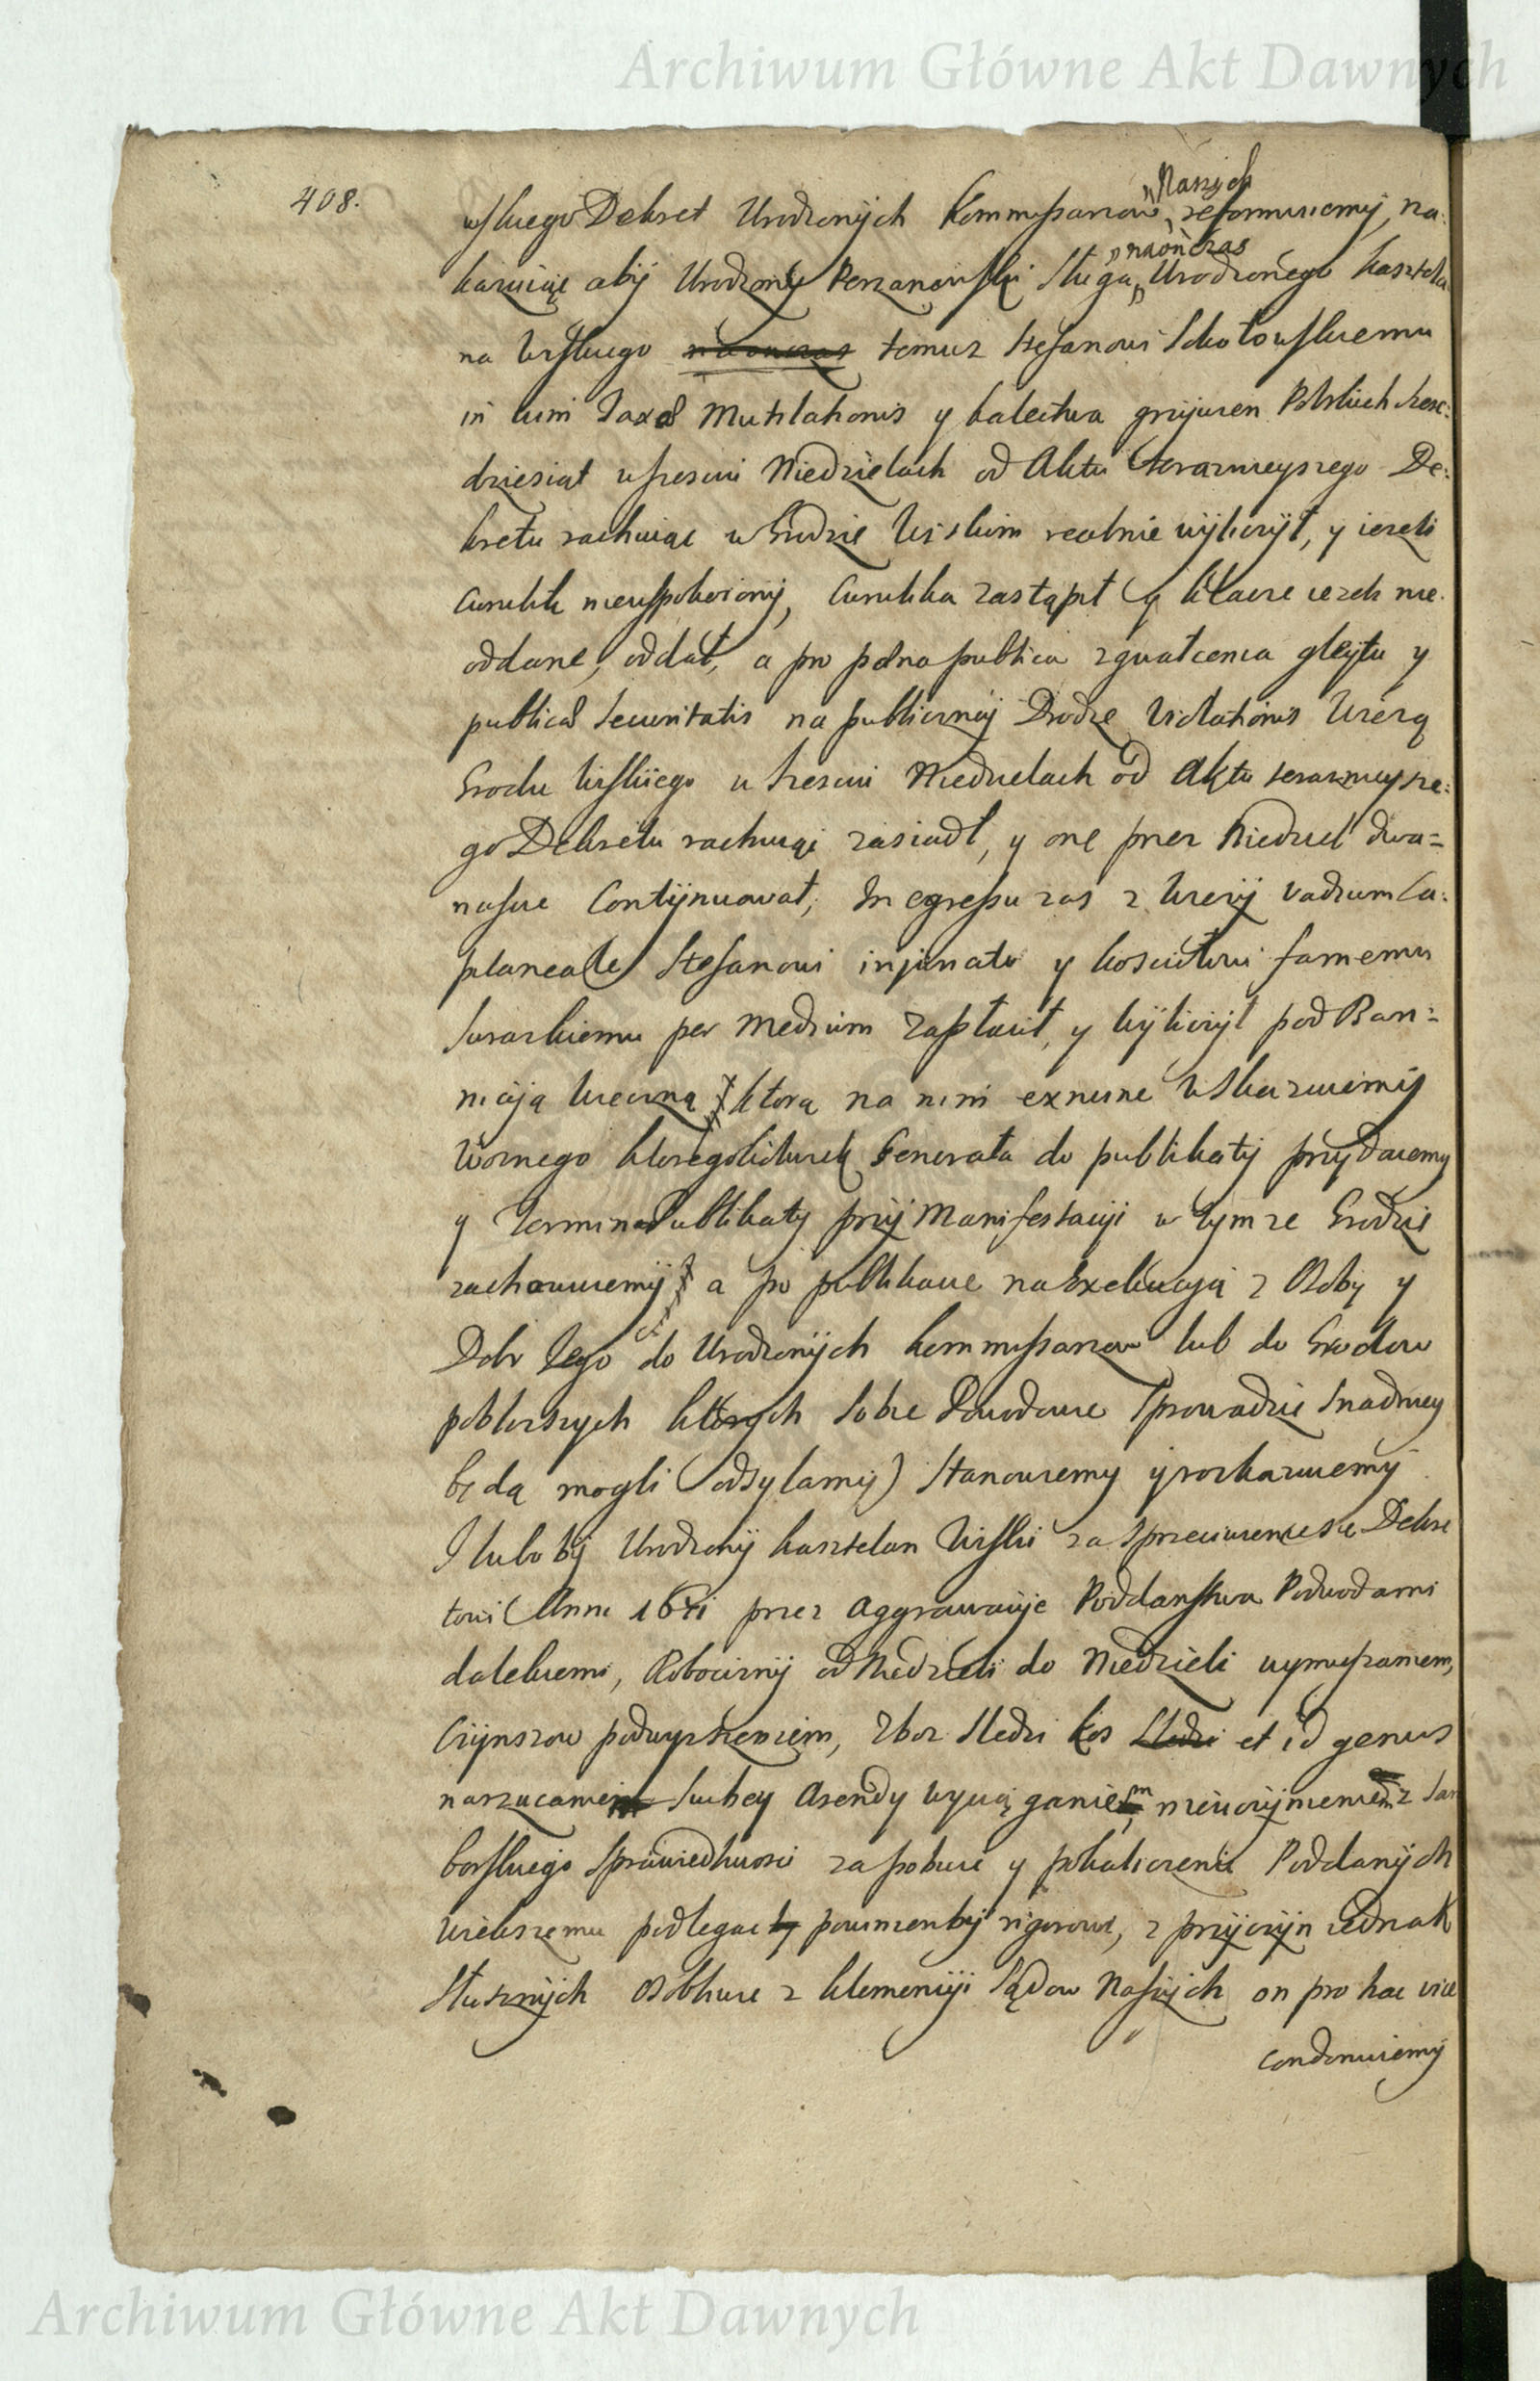 Archiwum Główne Akt Dawnych
408.
Naszych
wskiego Dekret Urodzonych Kommissarzow reformuiemy, na:
naonczas
kazuiąc aby Urodzony Perzanowski Sługa Urodzonego Kasztela
na Wiskiego naonczas temuz Stefanowi Sokołowskiemu
in vim Taxae Mutilationis y kalectwa grzywen Polskich szesc:
dziesiąt w szesciu Niedzielach od Aktu terazneyszego De:
kretu rachuiąc w Grodzie Wiskim realnie wyliczył, y iezeli
Cyrulik nieuspokoiony, Cyrulika zastąpił y klacze iezeli nie
oddane, oddał, a pro paena publica zgwałcenia gleytu y
publicae Securitatis na publiczney Drodze Violationis Wiezą
Grodu Wiskiego w szesciu Niedzielach od Aktu terazneysze:
go Dekretu rachuiąc zasiadł, y one przez Niedziel dwa=
nascie Contynuował, In egressu zas z Wiezy vadium Ca:
planeale Stefanowi injuriato y kosciołowi farnemu
Suraskiemu per medium zapłacił, y wyliczył pod Ban=
nicyą wieczną ktorą na nim exnunc wskazuiemy
Woznego ktoregokolwiek Generała do publikaty przydaiemy
y Termina Publikaty przy Manifestacyi w tymze Grodzie
zachowuiemy a po publikacie na Exekucyją z Osoby y
Dobr Tego do Urodzonych Kommissarzow lub do Grodow
pobliszszych ktorych sobie Powodowie sprowadzić snadniey
będą mogli odsyłamy) Stanowiemy y rozkazuiemy
I luboby Urodzony kasztelan Wiski za sprzeciwienie sie Dekre
towi Anni 1671 przez aggrawacyje Poddanstwa Podwodami
dalekiemi, Robocizny od Niedzieli do Niedzieli wymyszaniem,
Czynszow podwyszeniem, Zboz Sledzi kos Sledzi et id genus
narzucaniem Suchey Arendy wyciąganiem nieuczynienie z Sam
borskiego Sprawiedliwosci za pobicie y pokaliczenie Poddanych
wiekszemu podlegac by powinienby rigorowi, z przyczyn iednak
Słusznych Osobliwie z klemencyi Sądow Naszych on pro hac vice
condonuiemy
Archiwum Główne Akt Dawnych